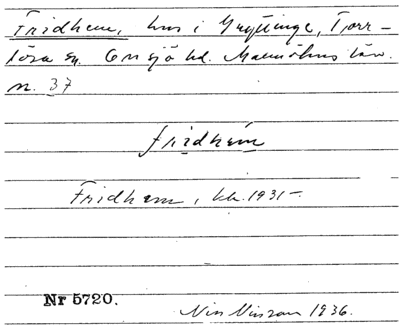 Fridhem, hus i Gryttinge, Torr-
lösa sn. Onsjö hd. Malmöhus län.
n. 37
fridhém
Fridhem, kb. 1931-
Nr 5720.
Nils Nilsson 1936.